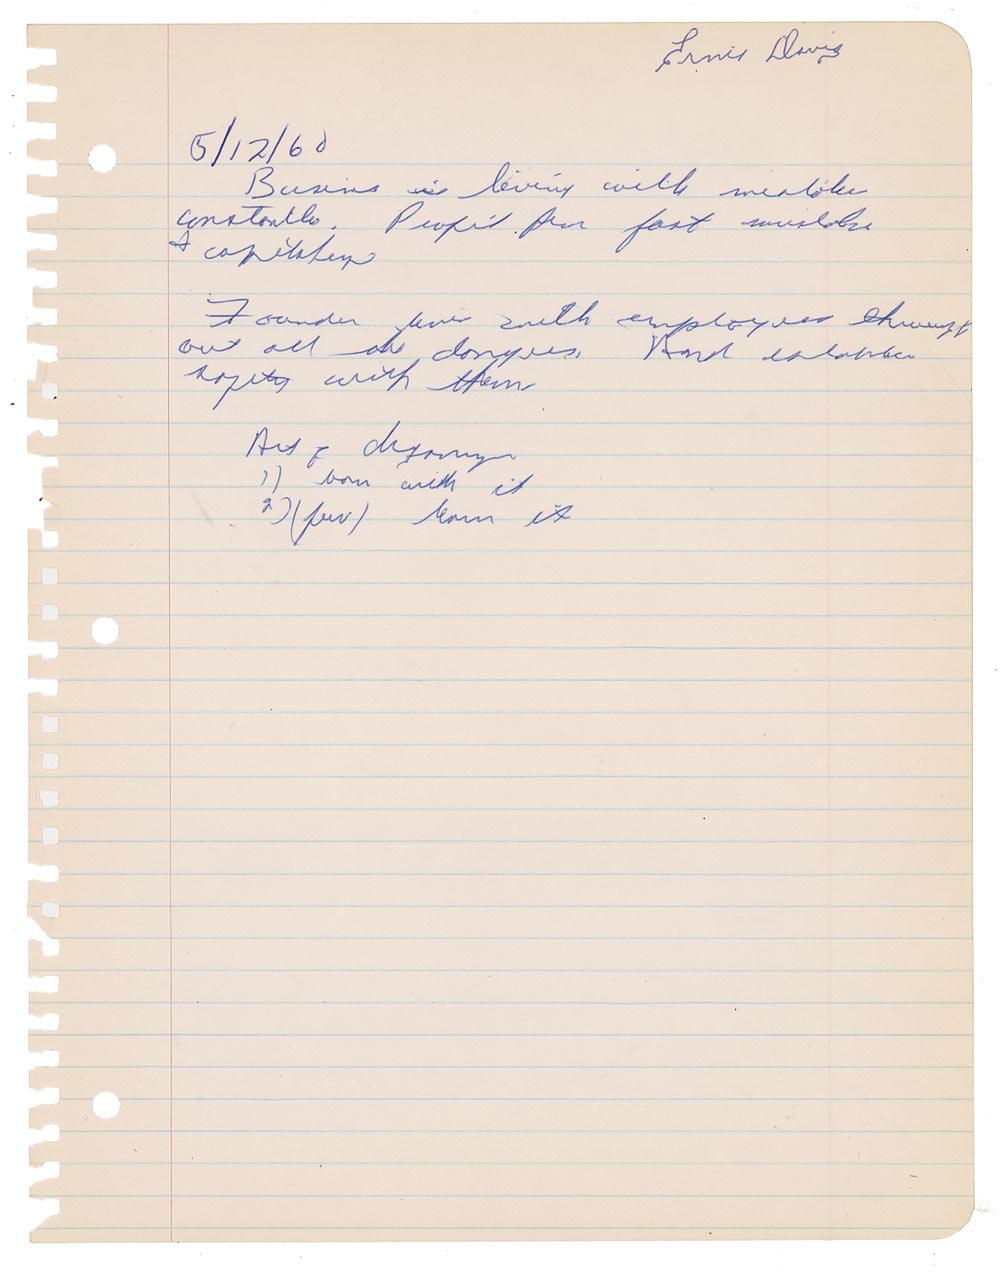 Ernie Davis
5/12/60
Business is living with mistake
constantly. Profit from past mistake
& capitalize
Founder lives with employees through
out all the Hard establish
with them
Art of
1) born with it
2) (few) learn it